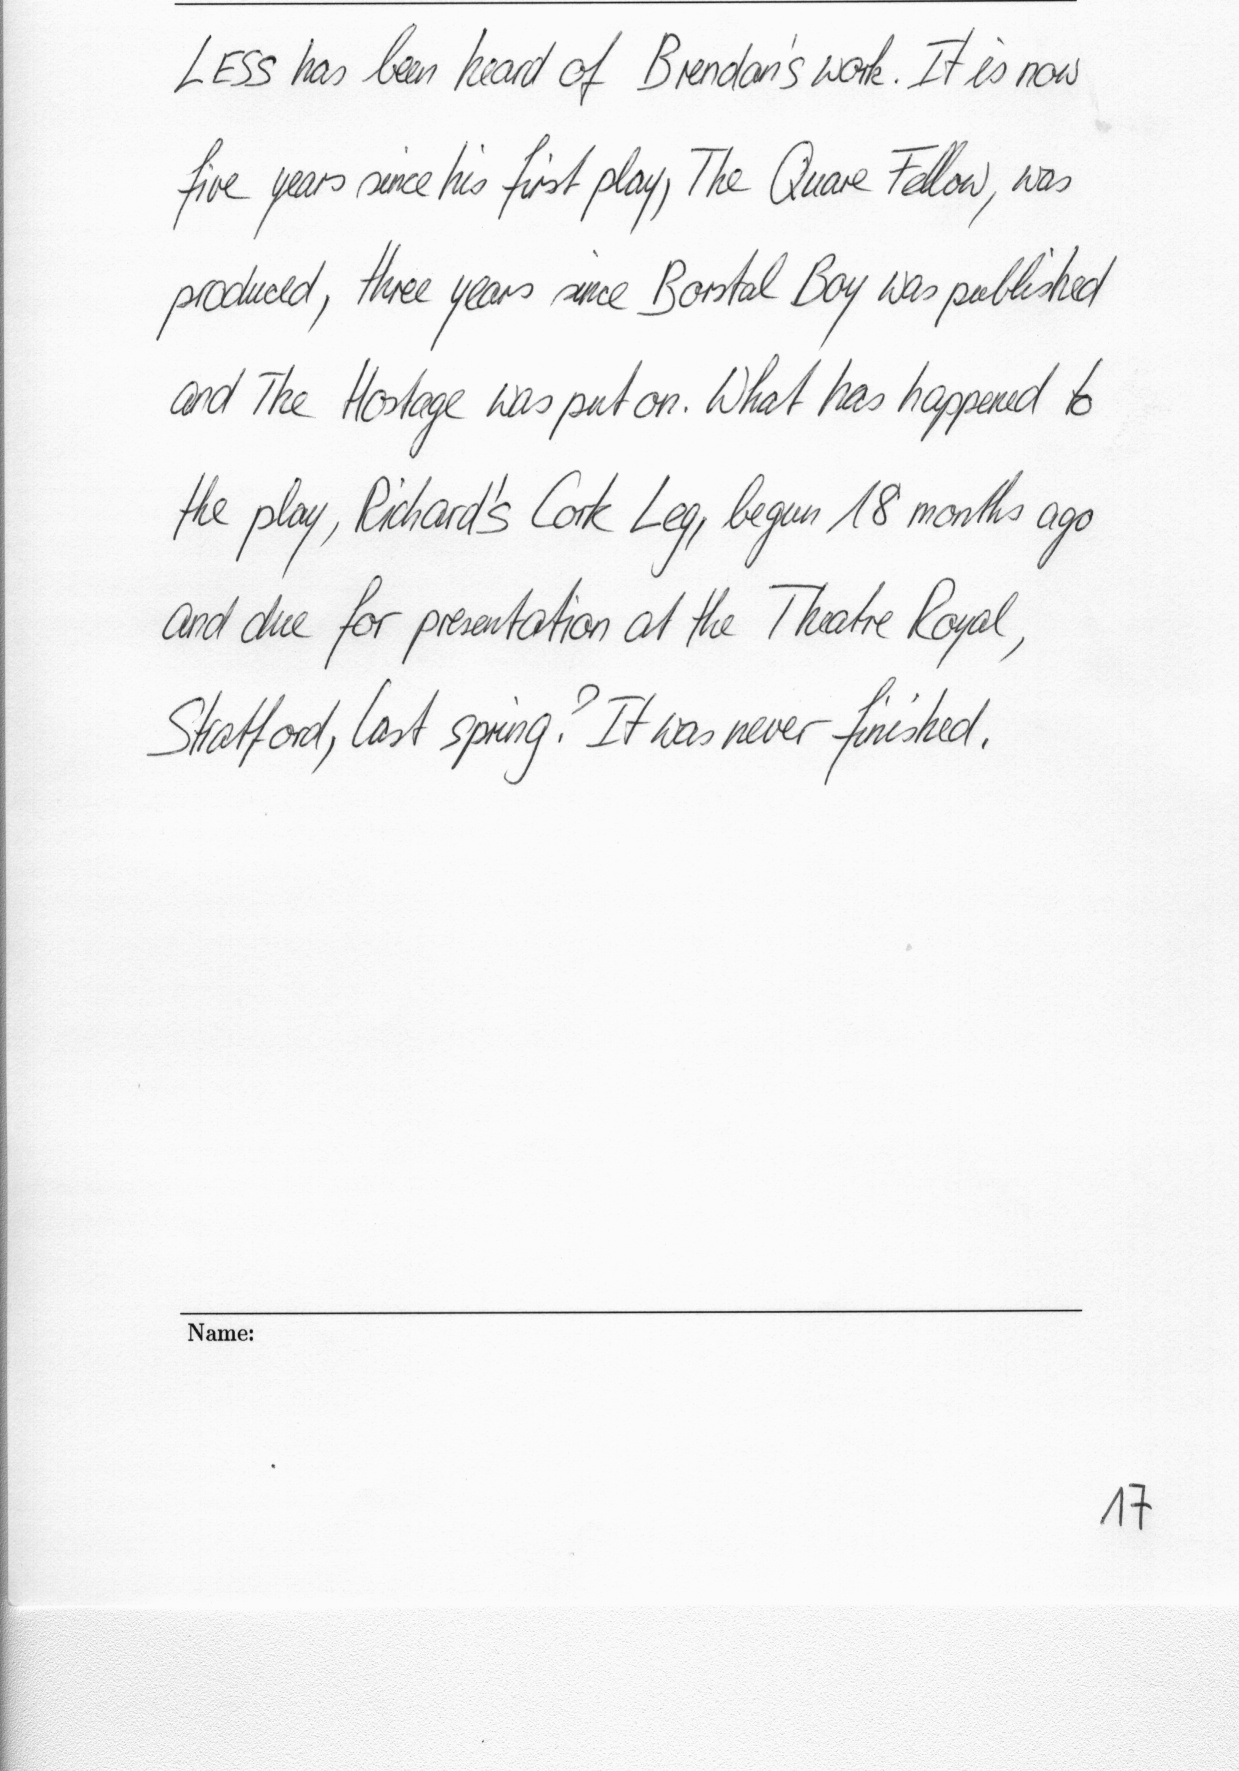 LESS has been heard of Brendan's work. It is now
five years since his first play, The Quare Fellow, was
produced, three years since Borstal Boy was published
and The Hostage was put on. What has happened to
the play, Richard's Cork Leg, begun 18 months ago
and due for presentation at the Theatre Royal,
Stratford, last spring? It was never finished.
Name:
17